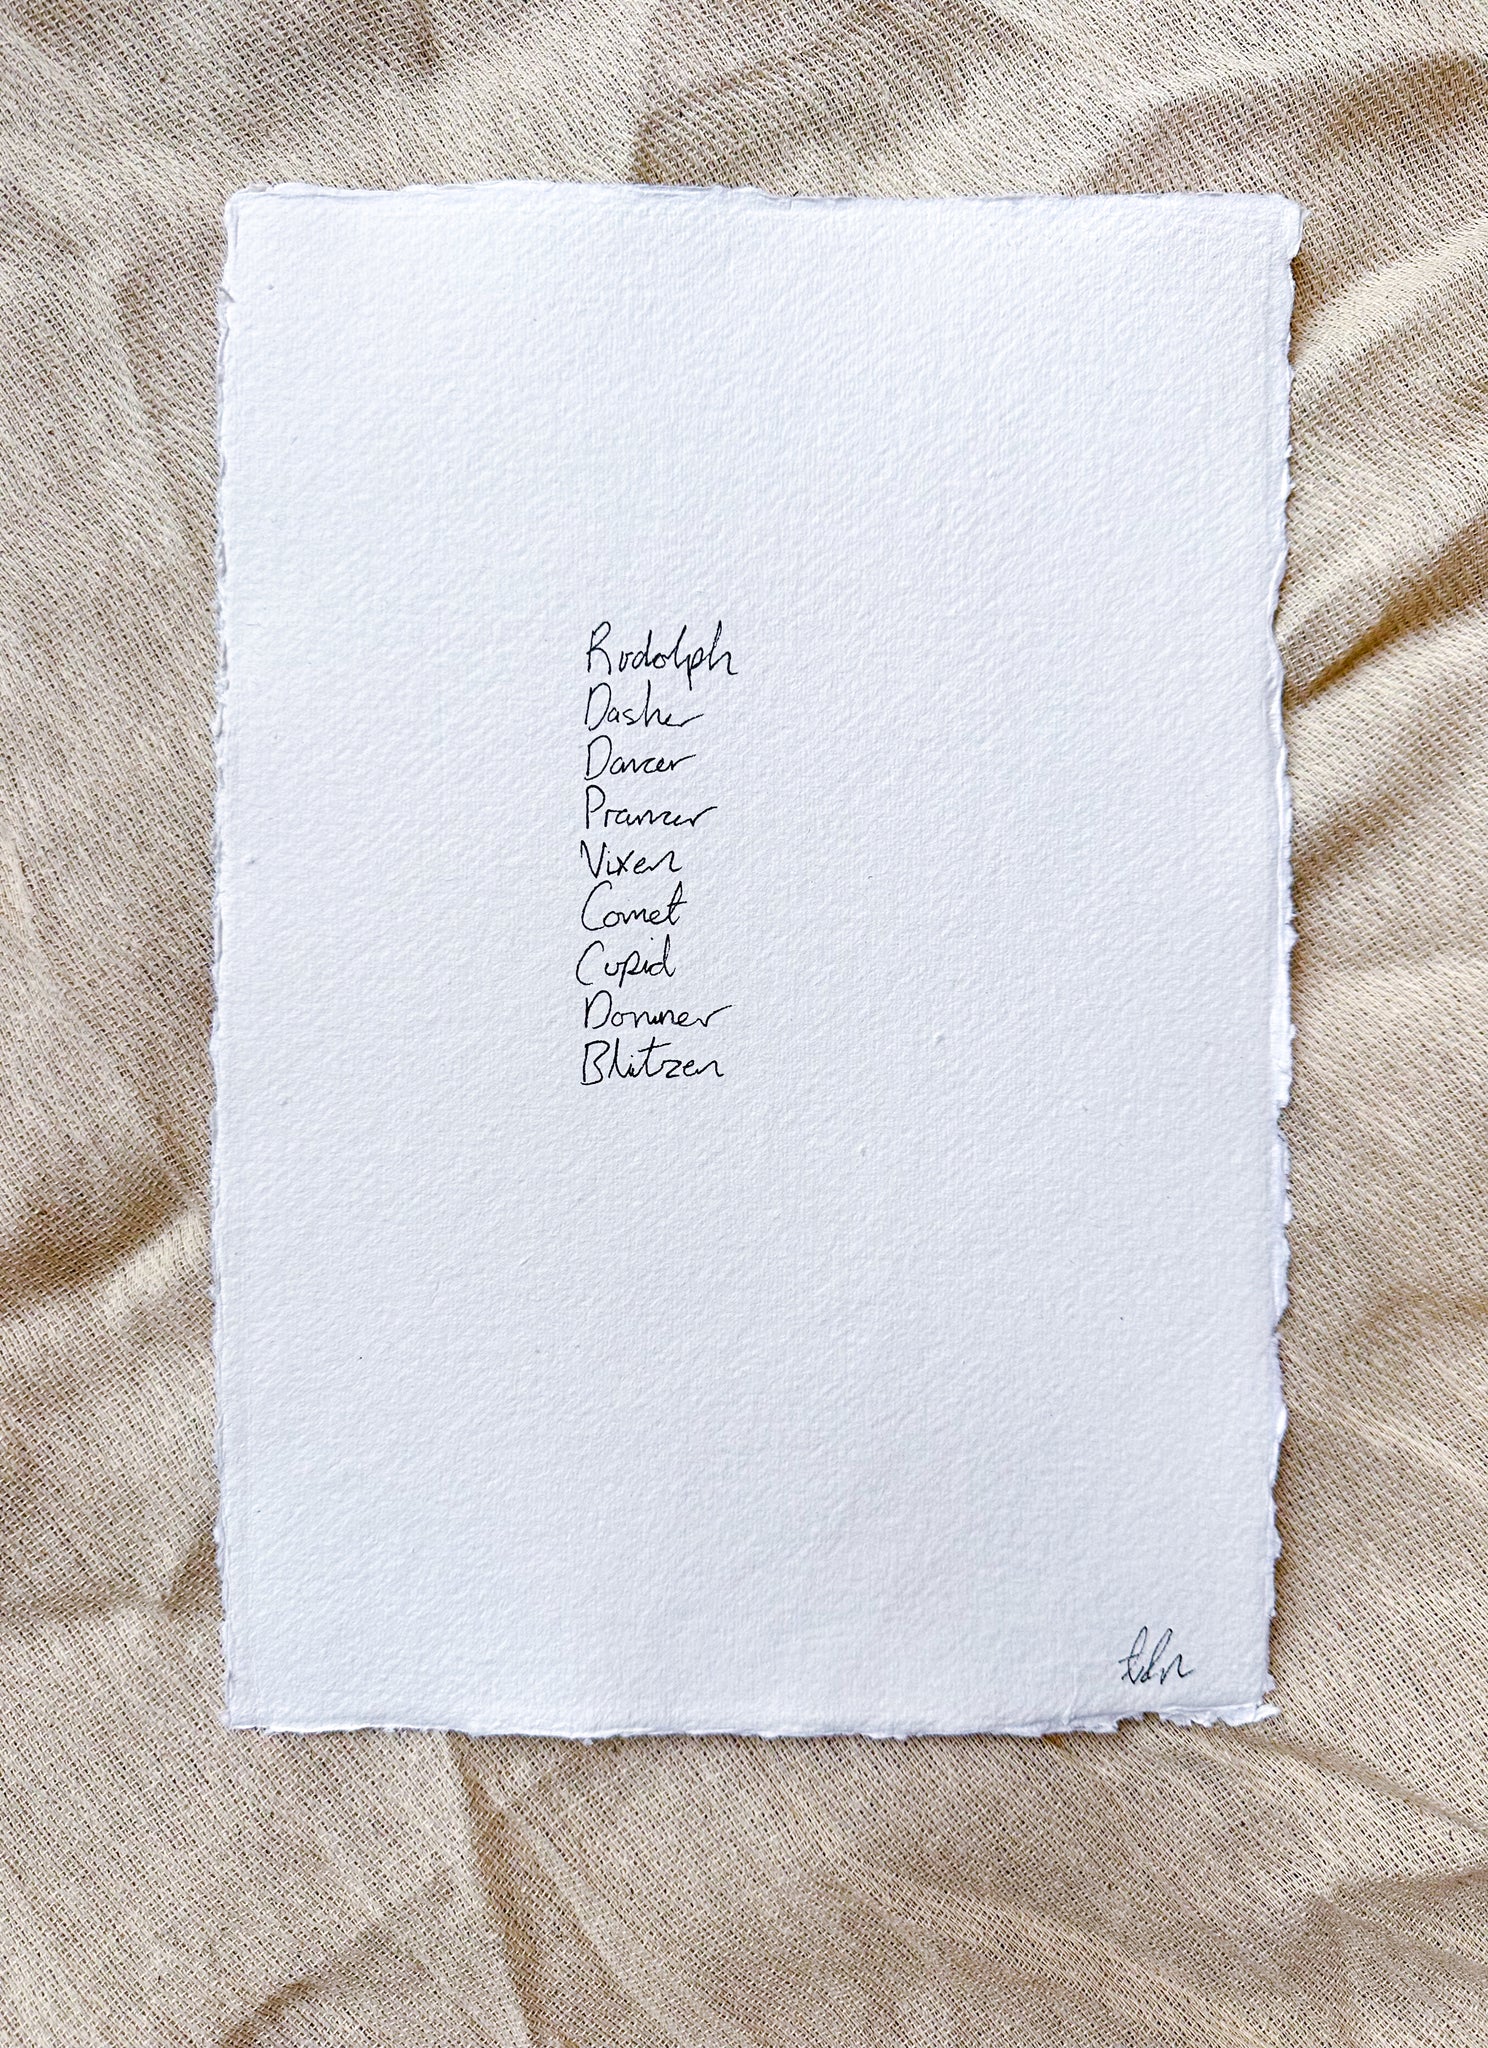 Rudolph
Dasher
Dancer
Prancer
Vixen
Comet
Cupid
Donner
Blitzen